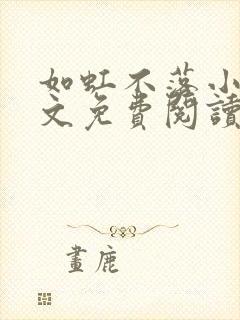 如虹不落小
文免費閱讀
畫鹿